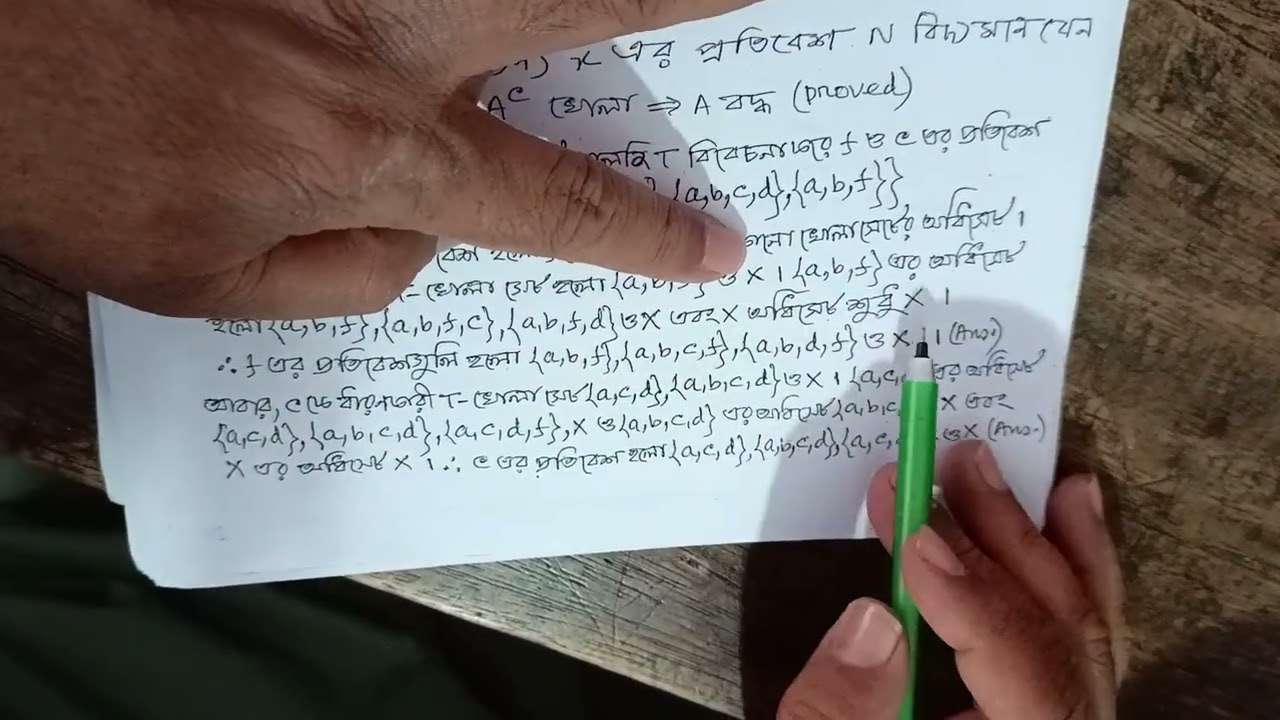 x এর প্রতিবেশ N বিদ্যমান যেন
A^c খোলা ⇒ A বদ্ধ (proved)
T বিবেচনা করে f ও c এর প্রতিবেশ
{a,b,c,d},{a,b,f}}
খোলা সেটের অধিসেট ।
খোলা সেট হলো {a,b, ও X । {a,b,f} এর অধিসেট
হলো {a,b,f},{a,b,f,c},{a,b,f,d} ও X এবং X অধিসেট শুধু X ।
∴ f এর প্রতিবেশগুলি হলো {a,b,f},{a,b,c,f},{a,b,d,f} ও X । (Ans.)
আবার, c কে ধারনকারী T- খোলা সেট {a,c,d},{a,b,c,d} ও X । {a,c, এর অধিসেট
{a,c,d},{a,b,c,d},{a,c,d,f},X ও {a,b,c,d} এর অধিসেট {a,b,c, X এবং
X এর অধিসেট X । ∴ c এর প্রতিবেশ হলো {a,c,d},{a,b,c,d},{a,c, ও X (Ans.)